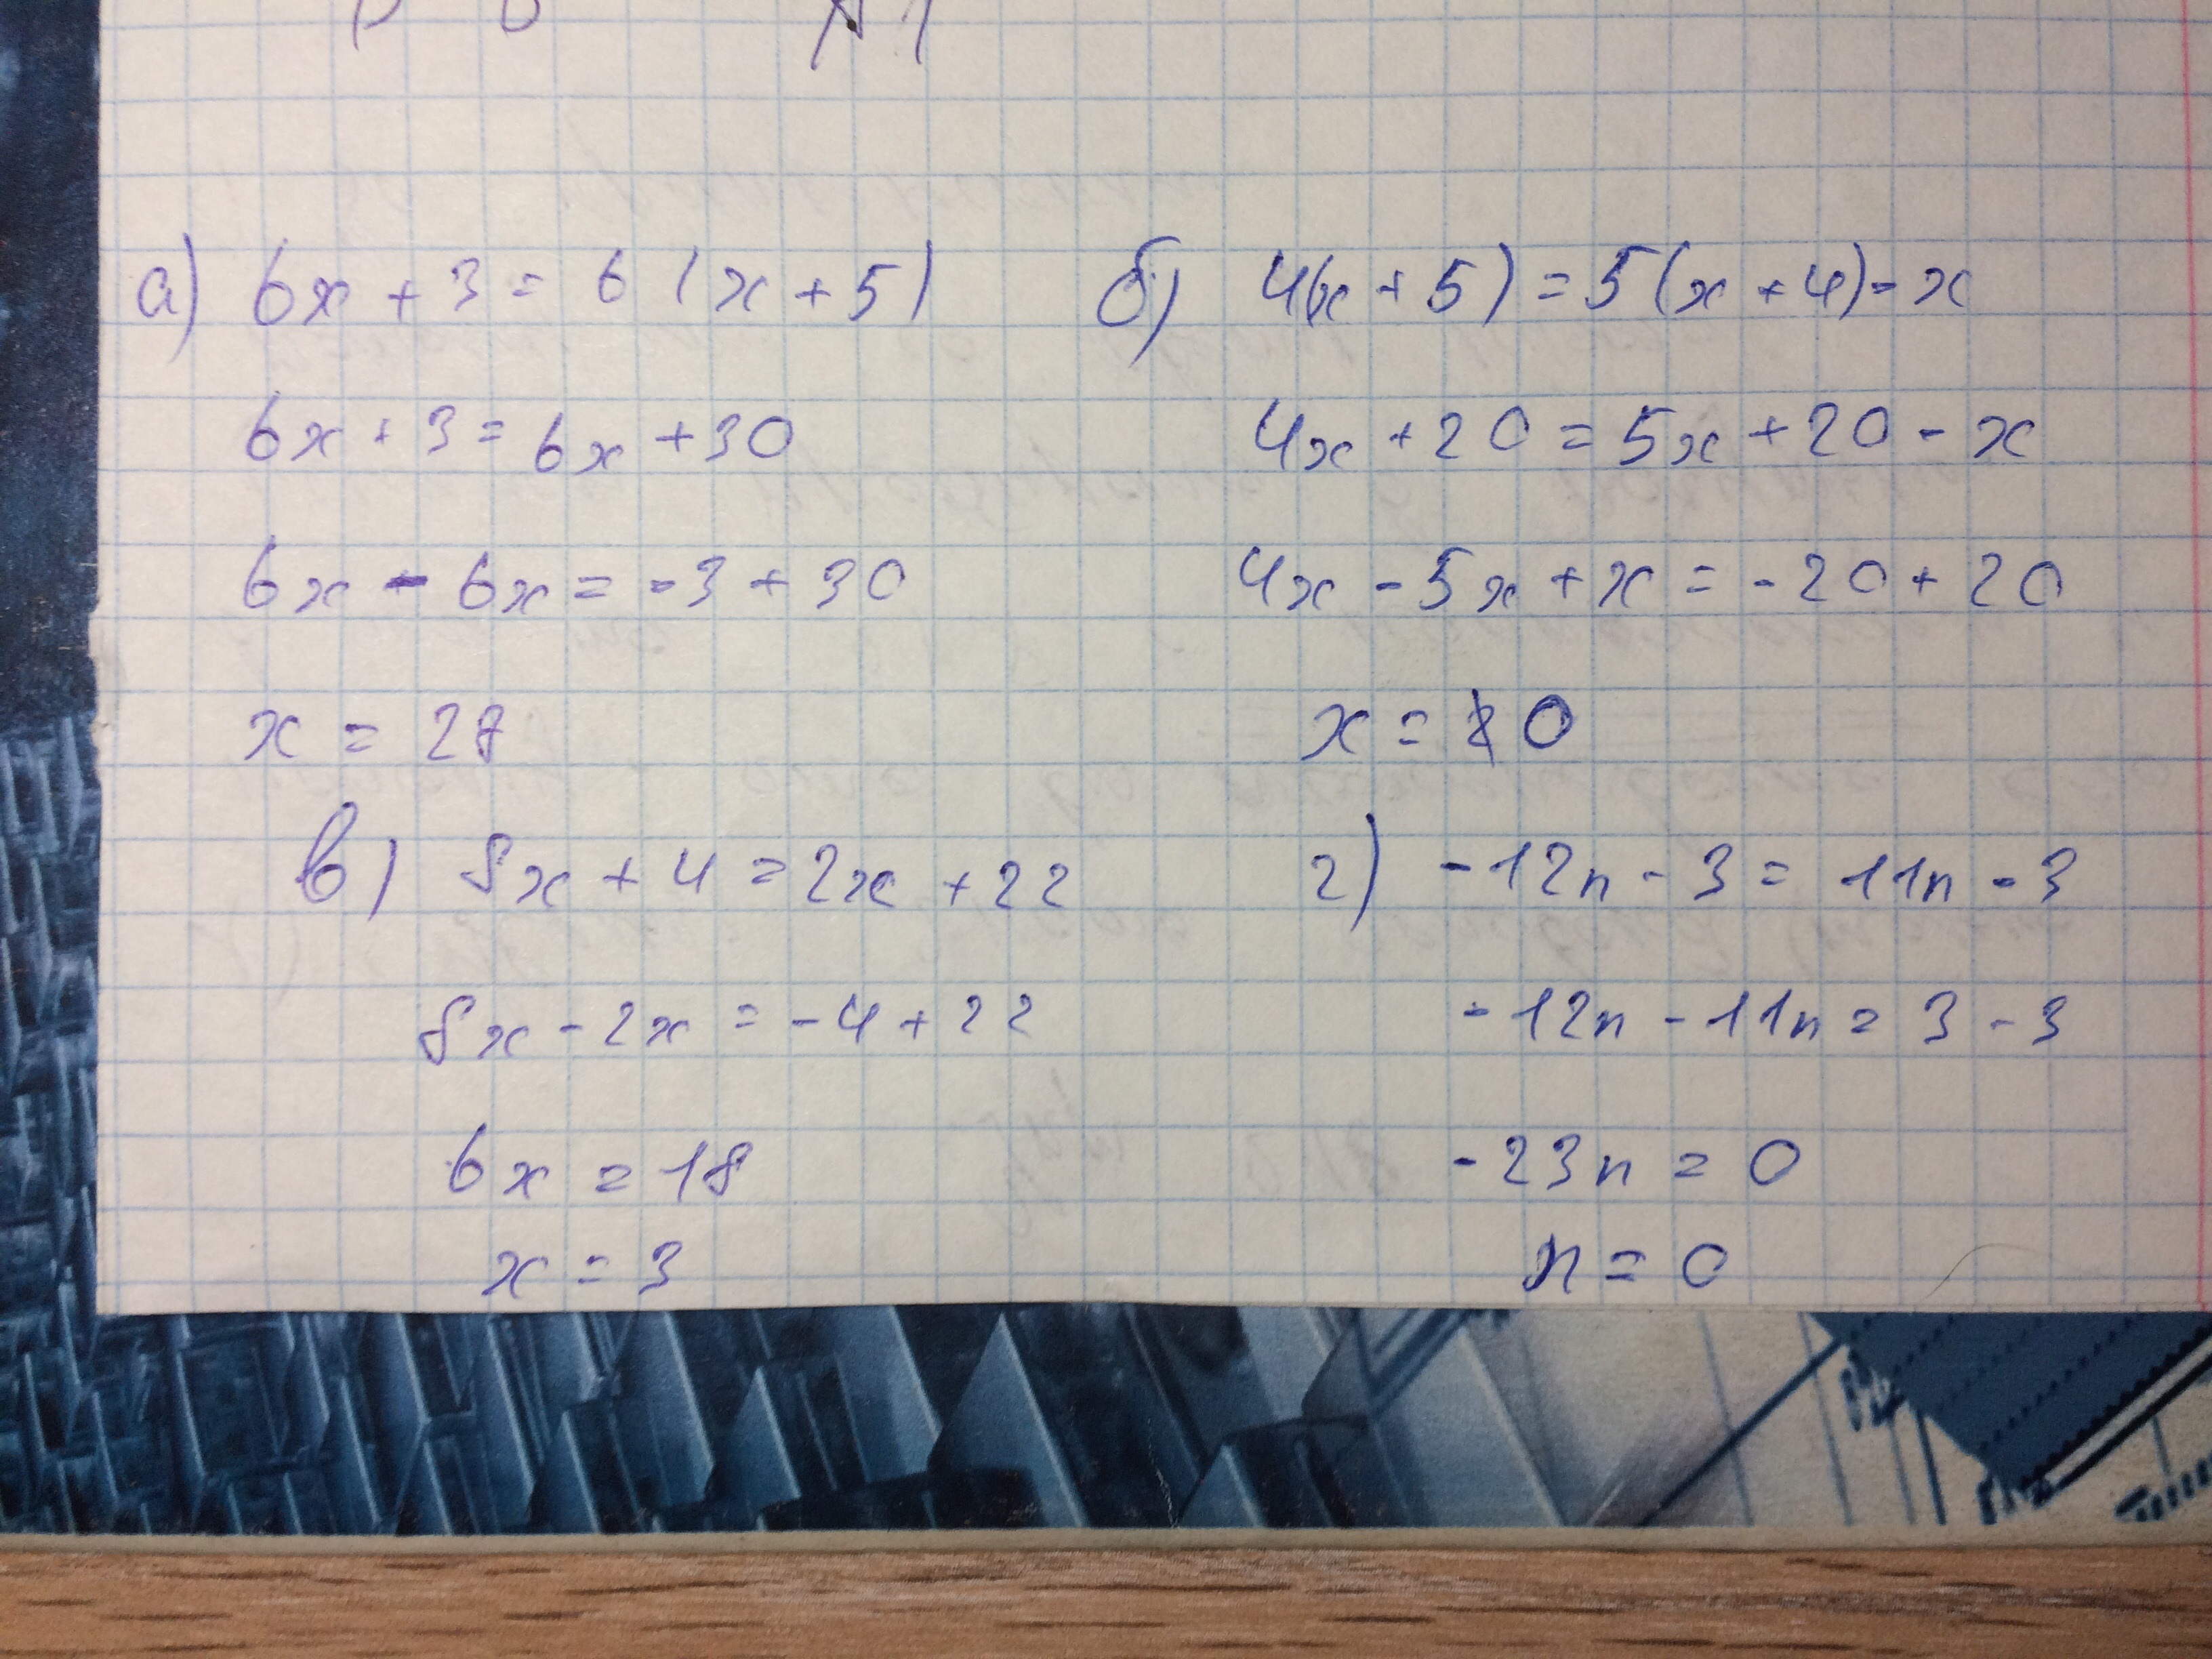 а) 6x + 3 = 6 (x + 5)
6x + 3 = 6x + 30
6x - 6x = -3 + 30
x = 28
б) 4(x + 5) = 5(x + 4) - x
4x + 20 = 5x + 20 - x
4x - 5x + x = -20 + 20
x = 0
в) 8x + 4 = 2x + 22
8x - 2x = -4 + 22
6x = 18
x = 3
г) -12n - 3 = 11n - 3
-12n - 11n = 3 - 3
-23n = 0
n = 0